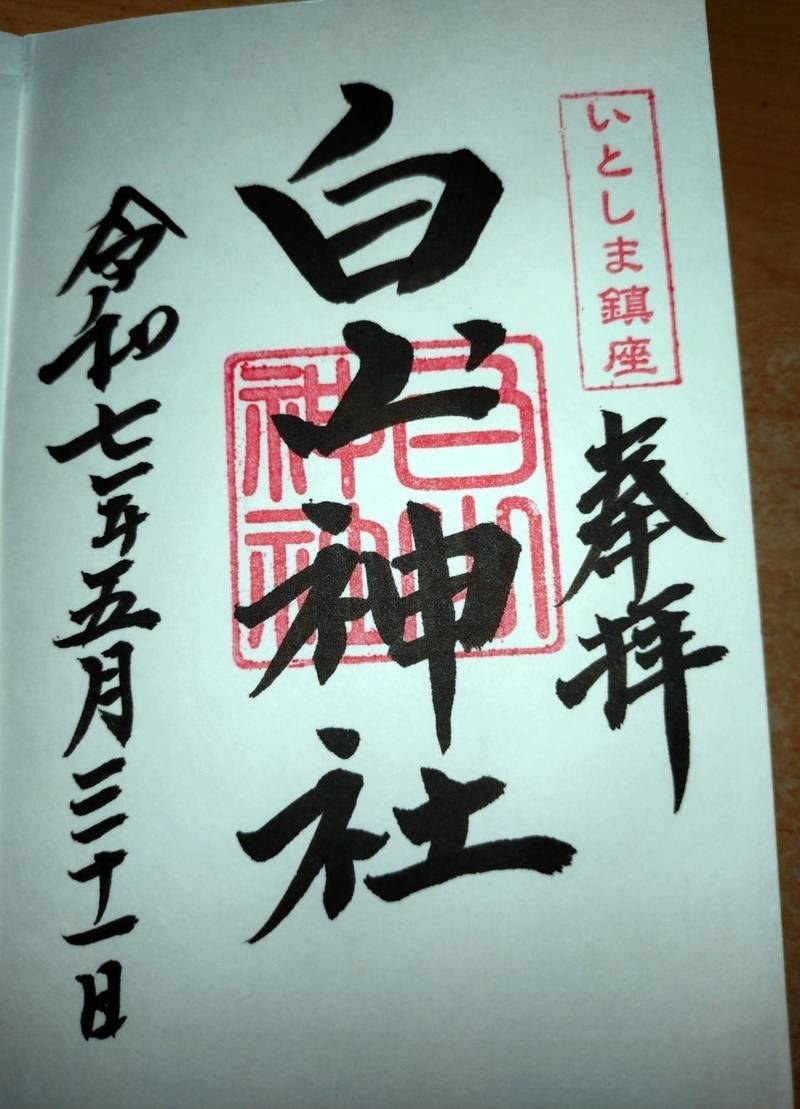 いとしま鎮座
奉拝
白山神社
白山
神社
令和七年五月三十一日